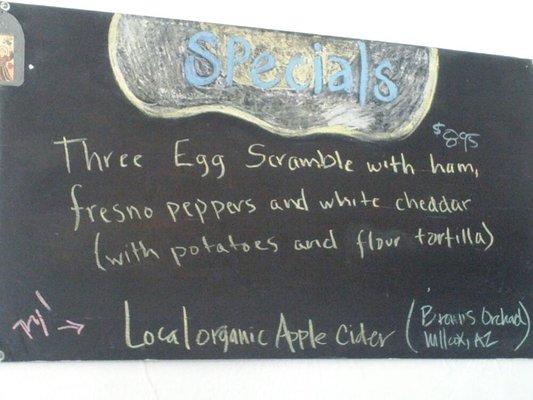 Specials
$8.95
Three Egg Scramble with ham,
fresno peppers and white cheddar
(with potatoes and flour tortilla)
Try! → Local organic Apple Cider (Brown's Orchard
Willcox, AZ)